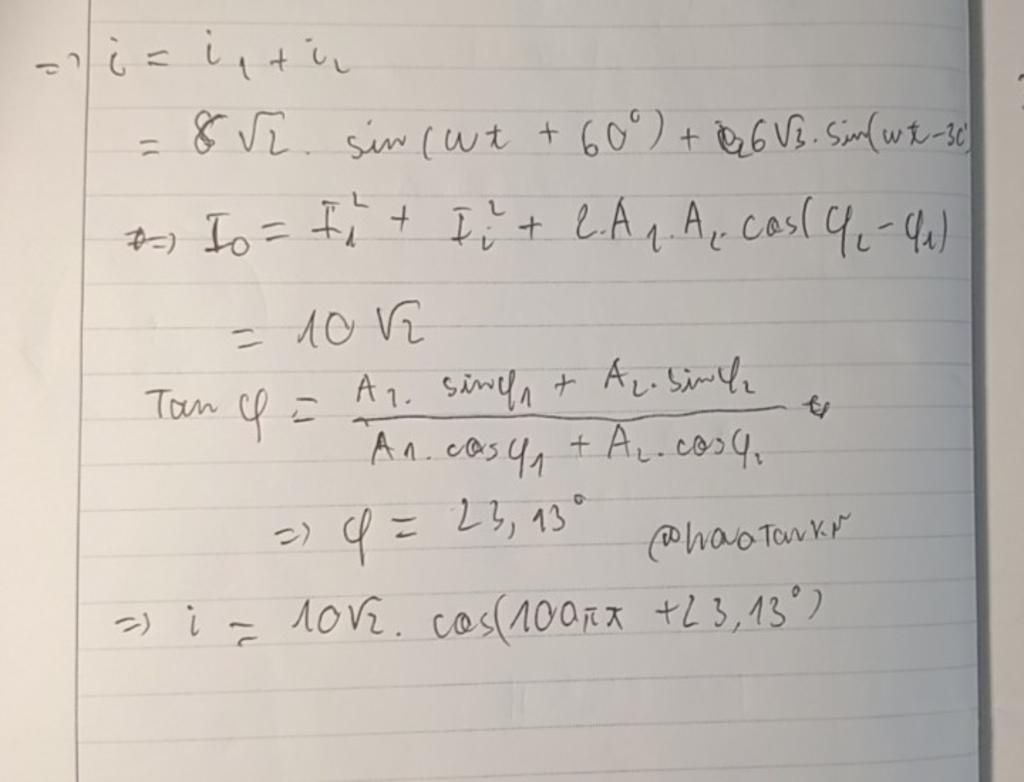 => i = i₁ + i₂
= 8√2. sin(ωt + 60°) + 6√3. sin(ωt - 30
=> I₀ = I₁² + I₂² + 2.A₁.A₂. cos(φ₂ - φ₁)
= 10√2
Tan φ = (A₁. sinφ₁ + A₂. sinφ₂) / (A₁. cosφ₁ + A₂. cosφ₂)
=> φ = 23,13°
=> i = 10√2. cos(100πt + 23,13°)